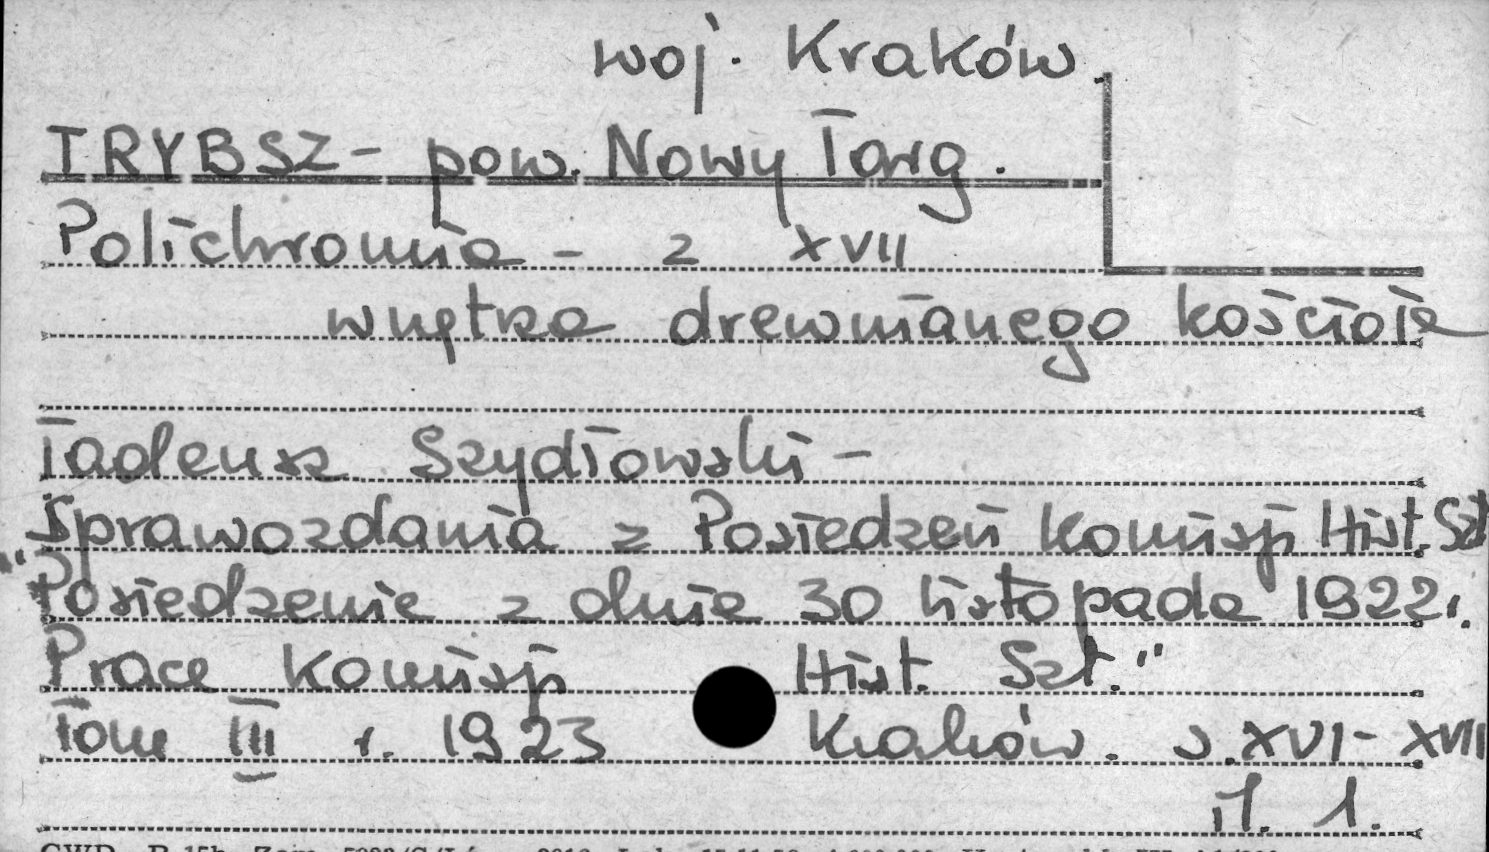 woj. Kraków
TRYBSZ - pow. Nowy Targ.
Polichromia - z XVII
wnętrza drewnianego kościoła
Tadeusz Szydłowski -
Sprawozdania z Posiedzeń Komisji Hist. Szt
"Posiedzenie z dnia 30 listopada 1922r.
Prace Komisji Hist. Szt."
Tom III r. 1923 Kraków. s. XVI - XVII
il. 1.